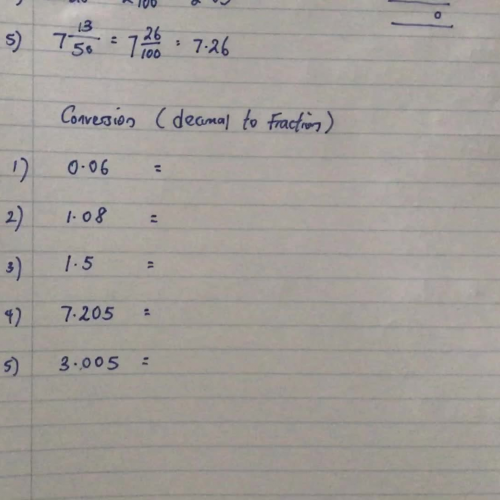 5) 7 13/50 = 7 26/100 = 7.26
Conversion (decimal to Fraction)
1) 0.06 =
2) 1.08 =
3) 1.5 =
4) 7.205 =
5) 3.005 =